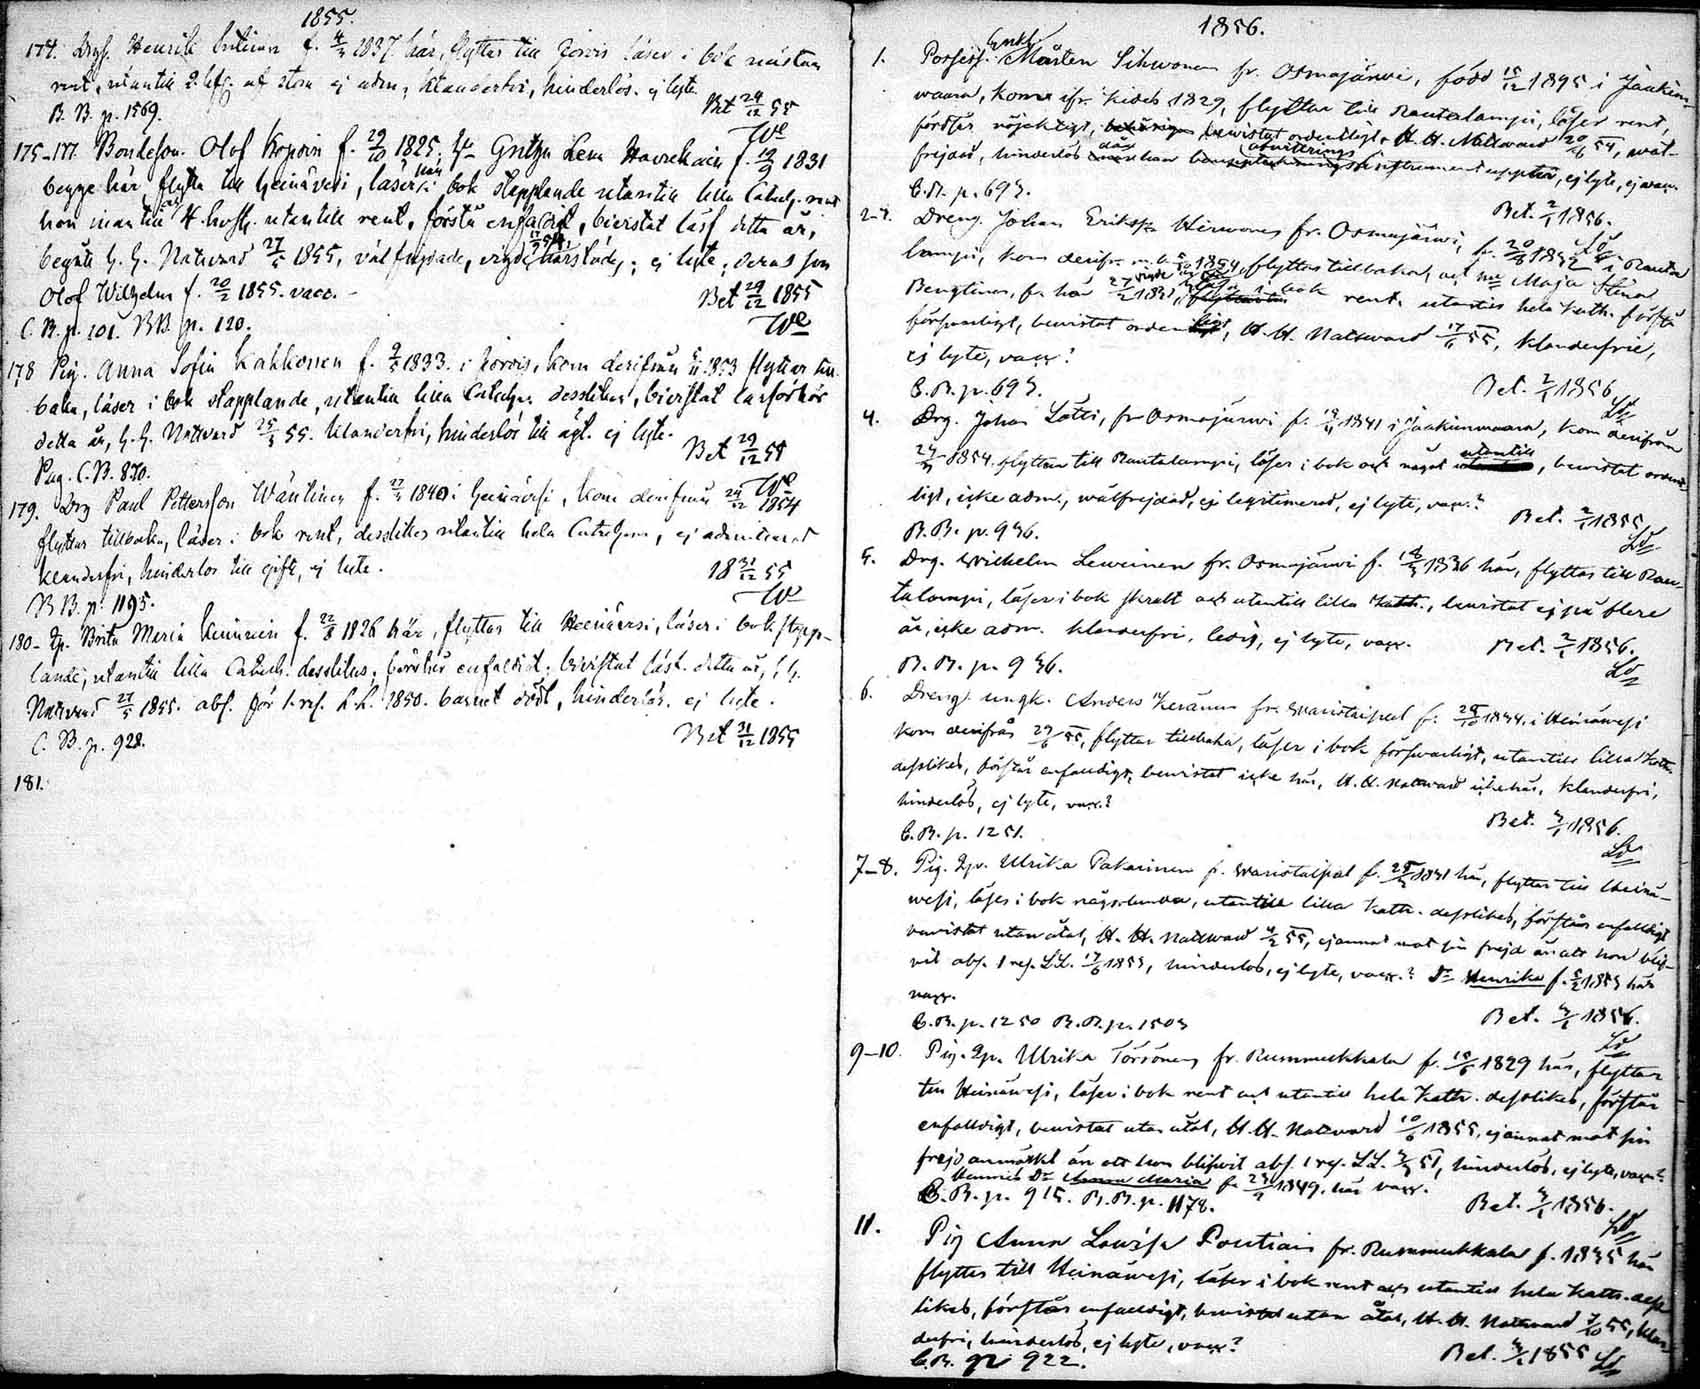 1855.
174. Drg. Henrik f. 4/3 1837 här, flyttar till Jorois läser i bok nästan
rent, utantill 2 hfst. af stora ej adm., klanderfri, hinderlös. ej lyte.
B. B. p. 1569. Bet 29/12 55
We
175-177. Bondeson. Olof Kopoin f. 29/10 1825, h. Gretha Lena f. 19/9 1831
begge här flytta till Heinävesi, läser i bok stapplande utantill lilla Catech. rent
hon innantill utantill rent, förstå enfaldigt, bevistat läsf detta år,
begått H. H. Nattvard 27/5 1855, välfrejdade, ej lyte, deras son
Olof Wilhelm f. 20/2 1855. vacc. - Bet 29/12 1855
C. B. p. 101. BB. p. 120. We
178 Pig. Anna Sofia Kakkonen f. 9/5 1833. i Jorois, kom derifrån 1853 flyttar till-
baka, läser i bok stapplande, utantill lilla Catechesen desslikes, bevistat läsförhör
detta år, H. H. Nattvard 25/3 55. klanderfri, hinderlös till ägt. ej lyte.
Pag. C. B. 870. Bet 29/12 55
We
179. Drg Paul Pettersson Wänttinen f. 27/7 1840 i Heinävesi, kom derifrån 24/12 1854
flyttar tillbaka, läser i bok rent, desslikes utantill hela Catechesen, ej admitterad
klanderfri, hinderlös till gifte, ej lyte. 18 31/12 55
B B. p. 1195. We
180- Qp. Brita Maria f. 22/8 1826 här, flyttar till Heinävesi, läser i bok stapp-
lande, utantill lilla Catech. desslikes, enfaldigt, bevistat läsf. detta år, H. H.
Nattvard 27/5 1855. abs. för 1. res. L. L. 1850. barnet dödt, hinderlös. ej lyte.
C. B. p. 928. Bet 31/12 1855
181.
1856.
1. Possess. Enkl. Mårten Sihwonen fr. Osmajärwi, född 15/12 1895 i Jaakim-
waara, kom ifr. Kides 1829, flyttar till Rautalampi, läser rent,
förstår nöjaktigt, bewistat ordentligt, H. H. Nattward 20/6 54, wäl-
frejdad, hinderlös då han afwittrings instrument upptar, ej lyte, ej wacc.
C. B. p. 693. Bet. 2/1 1856.
2-3. Dreng. Johan Eriksson Hirwonen fr. Osmajärwi, f. 20/8 1832 i Rauta
lampi, kom derifr. 1854, flyttar tillbaka, och Maja Stina
Bengtinen, f. här 27/2 183, i bok rent utantill hela Kath. förstår
försvarligt, bewistat ordentligt, H. H. Nattward 17/6 55, klanderfrie,
ej lyte, vacc?
C. B. p. 693. Bet. 2/1 1856
4. Drg. Johan Lötti, fr Osmajärwi f. 1841 i Jaakimwaara, kom derifrån
1854. flyttar till Rautalampi, läser i bok och något utantill, bewistat ordent
ligt, icke adm., wälfrejdad, ej legitimerad, ej lyte, vacc.? Bet. 2/1 1855
B. B. p. 936.
5. Drg. Wilhelm Lewinen fr. Osmajärwi f. 1836 här, flyttar till Rau-
talampi, läser i bok och utantill lilla Kath., bewistat ej på flere
år, icke adm. klanderfri, ledig, ej lyte, vacc. Bet. 2/1 1856.
B. B. p. 936.
6. Dreng. ungk. Anders Keränen fr. Waristaipal f. 28/10 1834. i Heinäwesi
kom derifrån 29/6 55, flyttar tillbaka, läser i bok försvarligt, utantill lilla Kath.
desslikes, förstår enfaldigt, bewistat icke här, H. H. Nattward icke här, klanderfri,
hinderlös, ej lyte, vacc.?
C. B. p. 1251. Bet. 3/1 1856.
7-8. Pig. Qp. Ulrika Pakarinen fr. Waristaipal f. 1831 här, flyttar till Heinä-
wesi, läser i bok någorlunda, utantill lilla Kath. desslikes, förstår enfaldigt
bewistat utan åtal, H. H. Nattward 55, ej annat mot sin frejd än att hon blif-
vit abs. 1 res. L.L. 17/6 1853, hinderlös, ej lyte, vacc.? Dr Henrika f. 5/2 1853 här
vacc.
C. B. p. 1250 B. B. p. 1503 Bet. 3/1 1856.
9-10. Pig. Qp. Ulrika Törrönen fr. Rummukkala f. 18/6 1829 här, flyttar
till Heinäwesi, läser i bok rent och utantill hela Kath. desslikes, förstår
enfaldigt, bewistat utan åtal, H. H. Nattward 10/6 1855, ej annat mot sin
frejd anmärkt än att hon blifwit abs. 1 res. L.L. 51, hinderlös, ej lyte, vacc.?
Hennes Dr Anna Maria f. 1849. här vacc.
C. B. p. 915. B. B. p. 1178. Bet. 3/1 1856.
11. Pig Anna Lowisa Poutiain fr. Rummukkala f. 1835 här
flyttar till Heinäwesi, läser i bok rent och utantill hela Kath. dess
likes, förstår enfaldigt, bewistat utan åtal, H. H. Nattward 7/10 55, klan-
derfri, hinderlös, ej lyte, vacc?
C. B. p 922. Bet. 3/1 1855